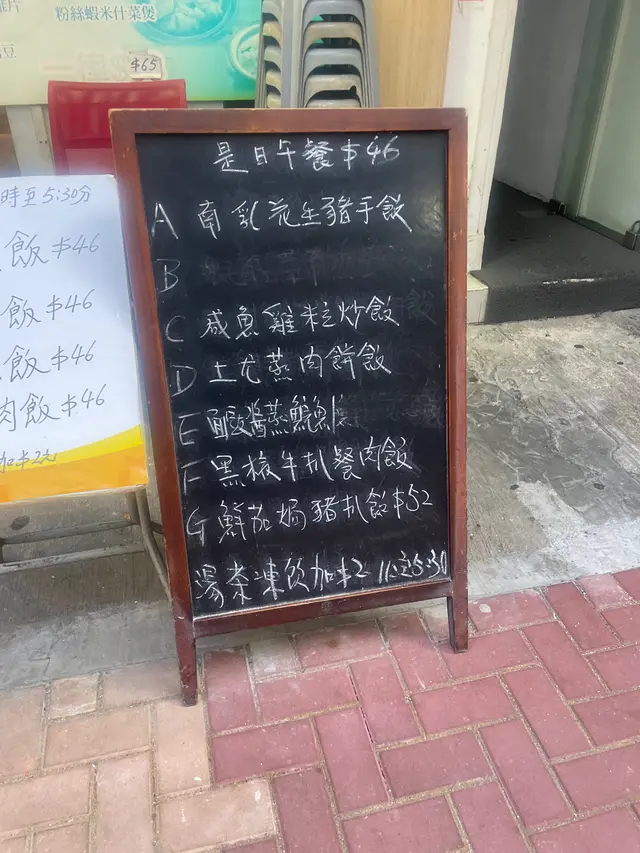 粉絲蝦米什菜煲
$65
時至5:30分
飯$46
飯$46
飯$46
肉飯$46
加$2元
是日午餐$46
A 南乳花生豬手飯
B
C 咸魚雞粒炒飯
D 土尤蒸肉餅飯
E 面豉醬蒸鯇魚
F 黑椒牛扒餐肉飯
G 鮮茄焗豬扒飯$52
湯茶凍飲加$2 11:至5:30